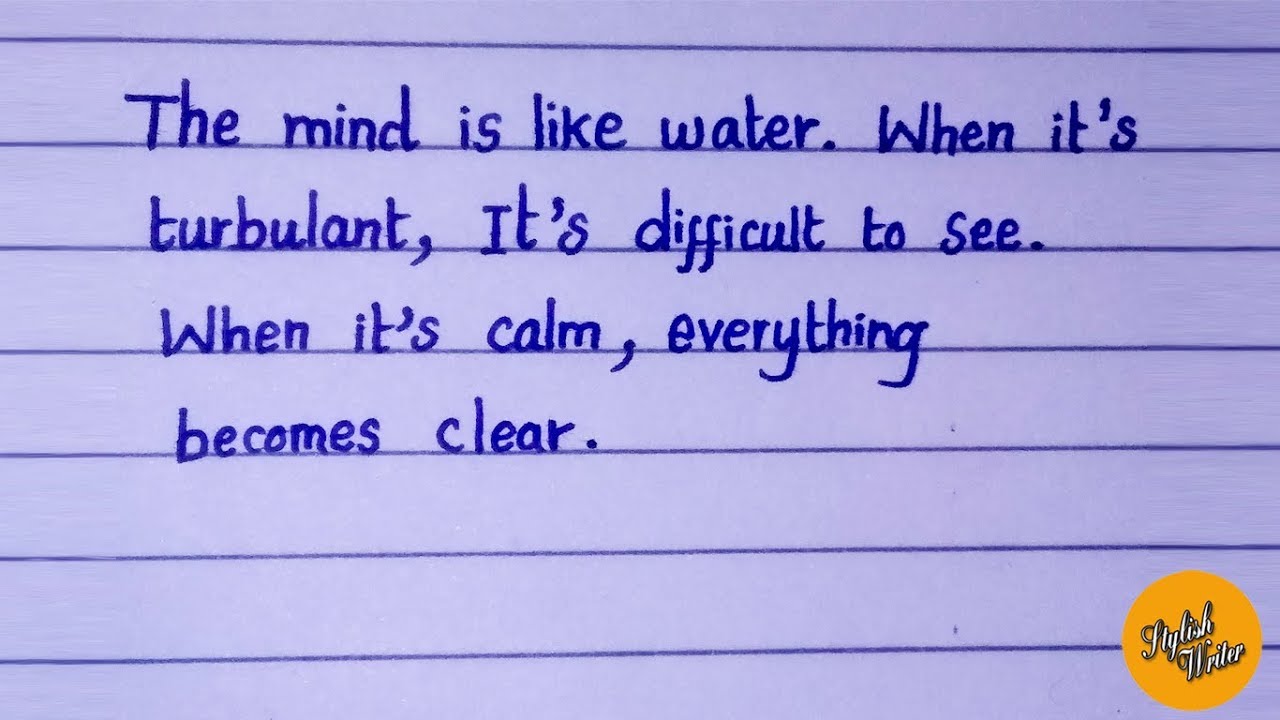 The mind is like water. When it's
turbulant, It's difficult to see.
When it's calm, everything
becomes clear.
Stylish
Writer